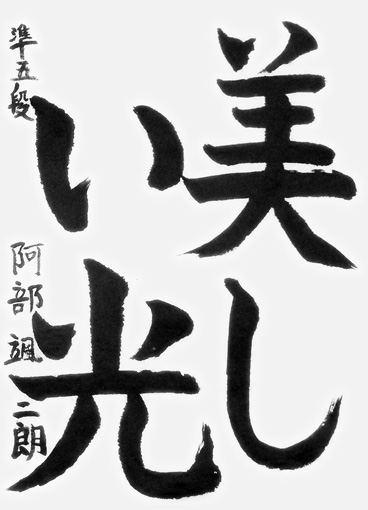 美し
い光
準五段 阿部颯二朗